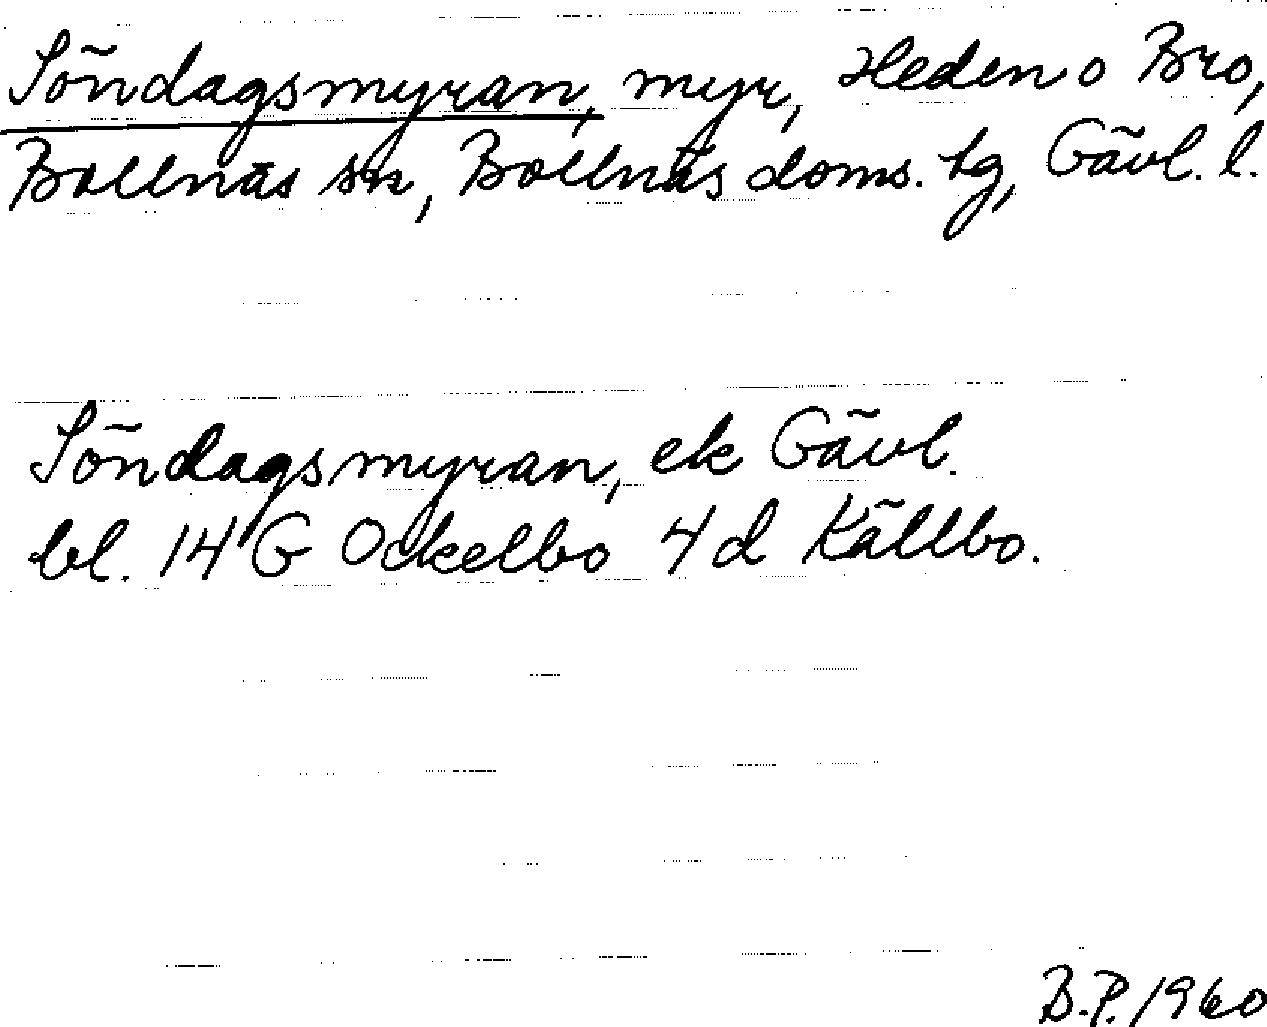 Söndagsmyran, myr, Heden o Bro,
Bollnäs sn, Bollnäs doms. tg, Gävl. l.
Söndagsmyran, ek Gävl.
bl. 14 G Ockelbo 4 d Källbo.
B.P. 1960